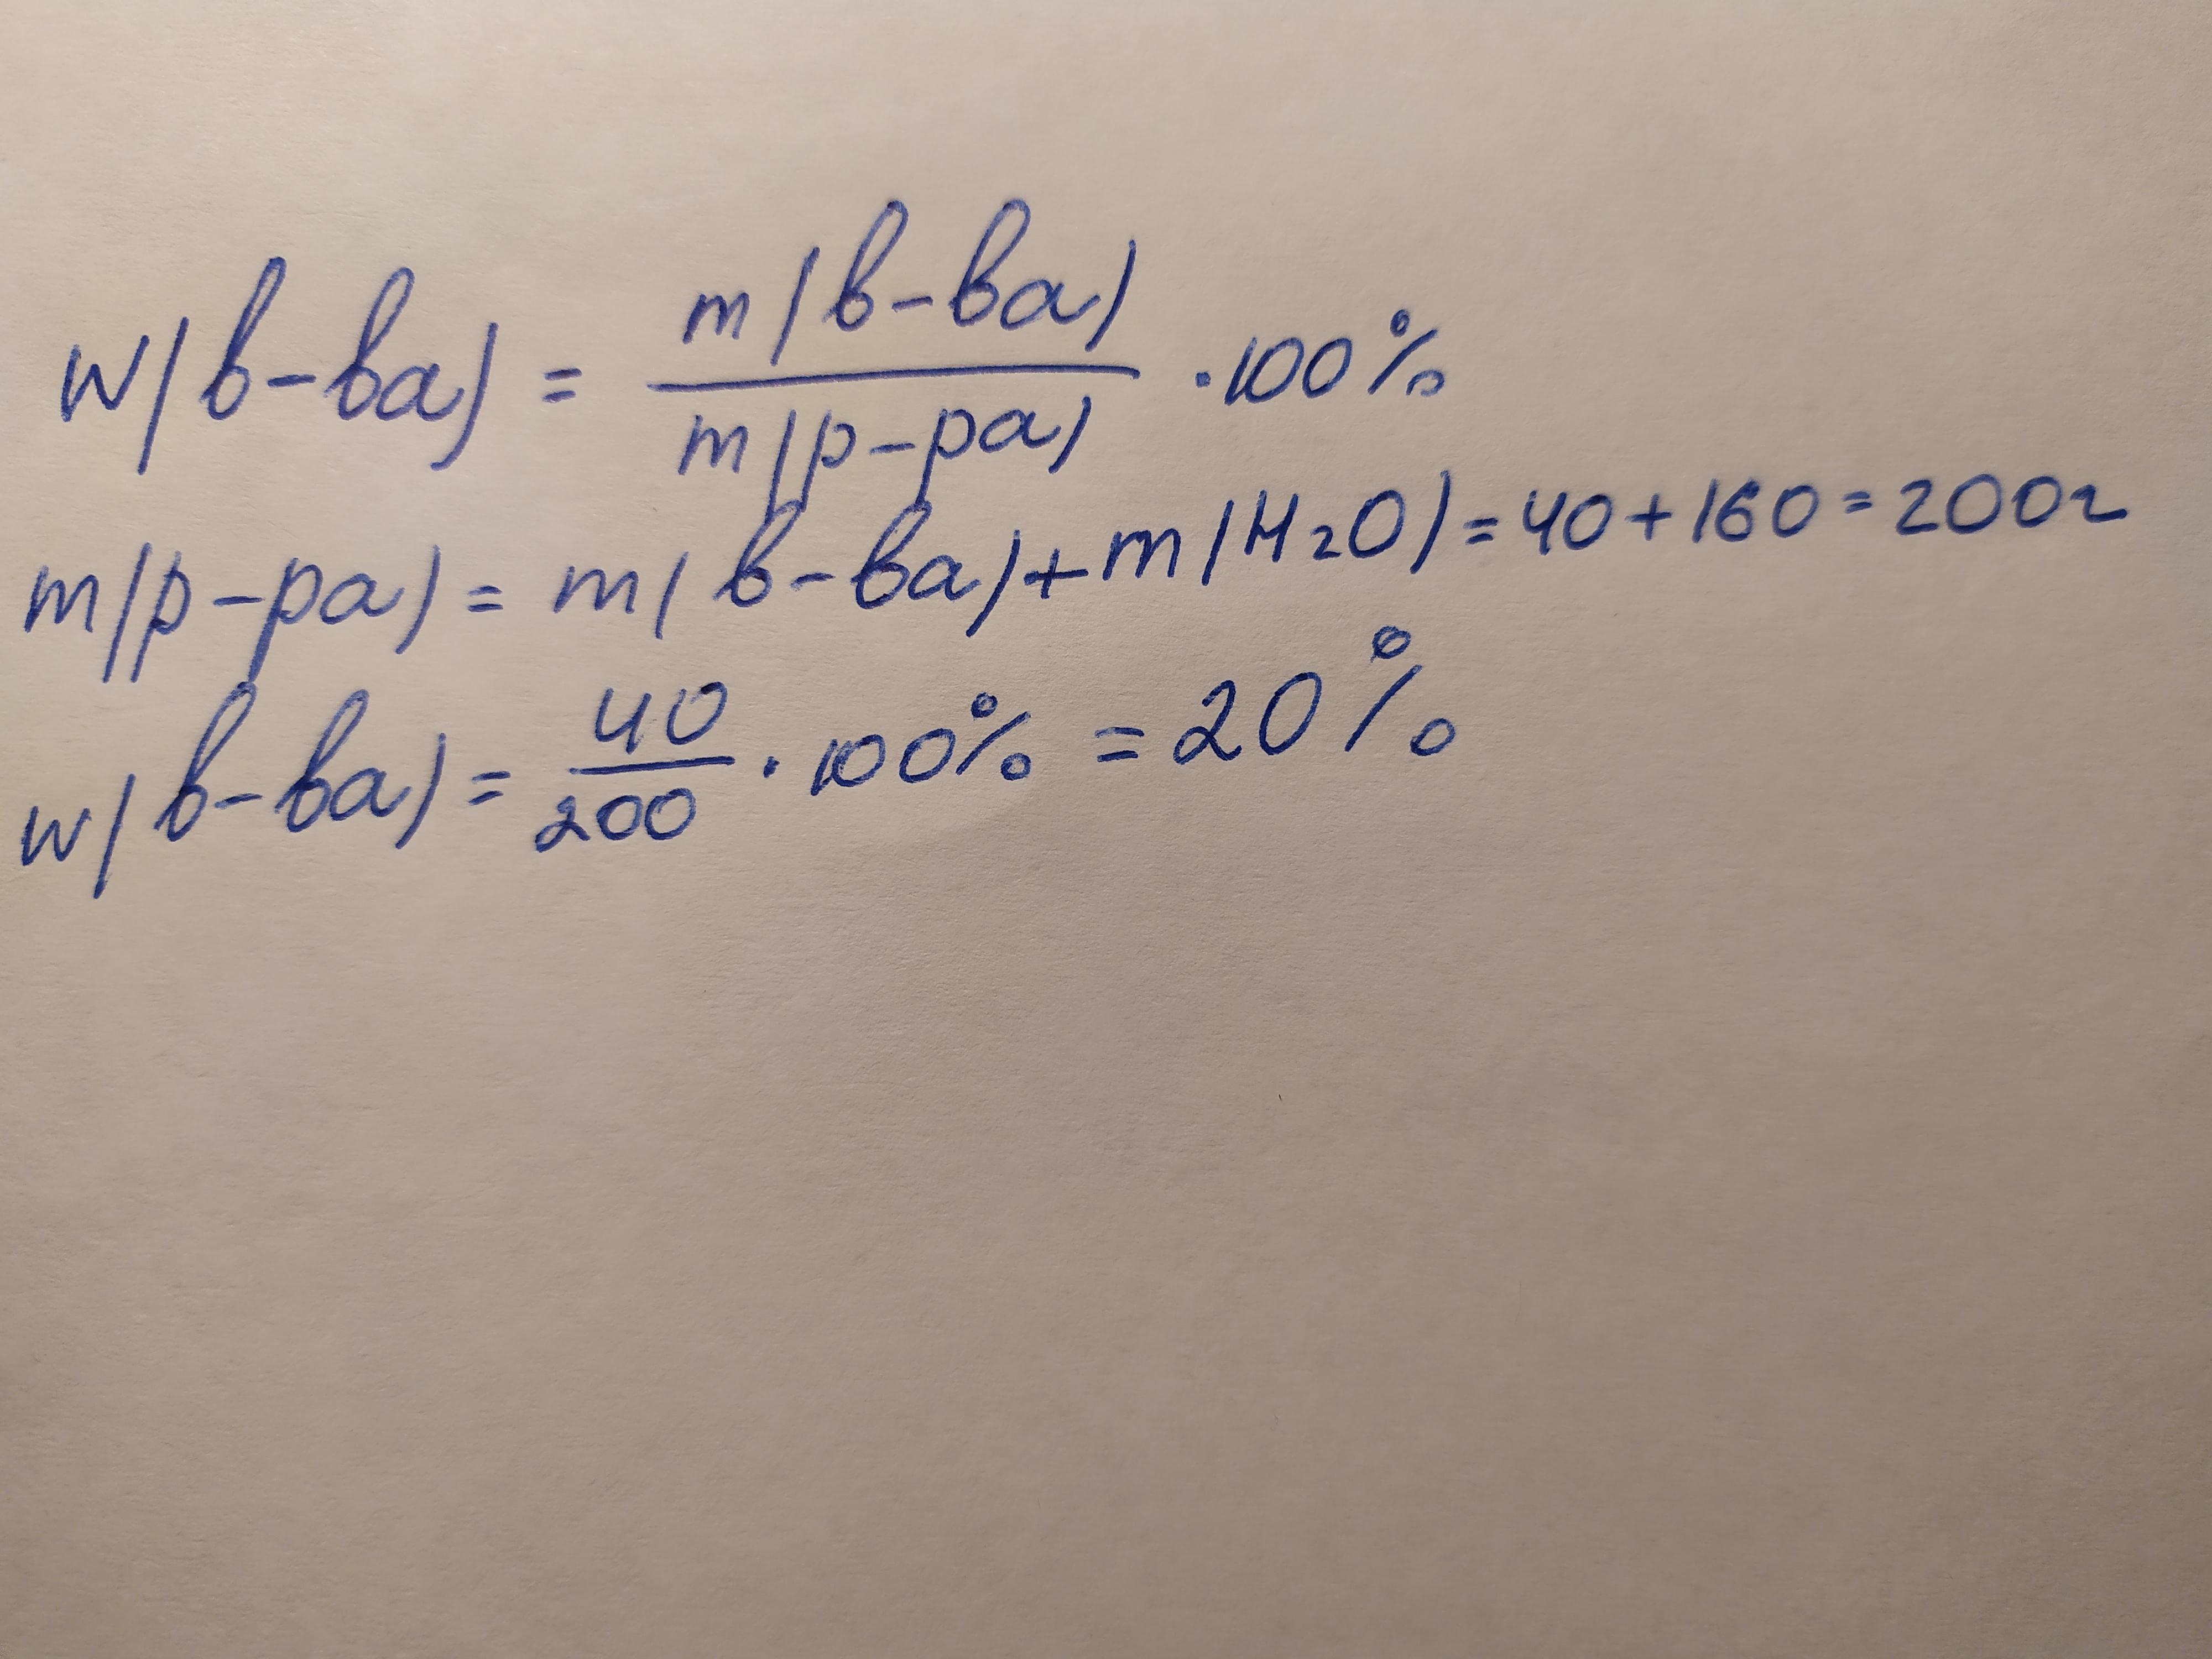 w(в-ва) = m(в-ва) / m(р-ра) · 100%
m(р-ра) = m(в-ва) + m(H2O) = 40 + 160 = 200г
w(в-ва) = 40 / 200 · 100% = 20%